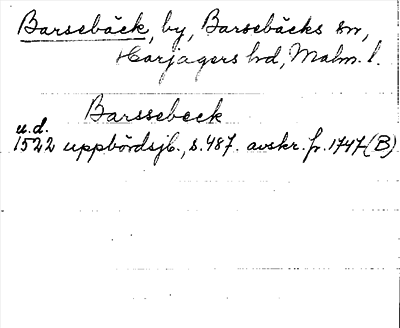 Barsebäck, by, Barsebäcks sn,
Harjagers hd, Malm. l.
Barssebeck
u.d.
1522 uppbördsjb., s. 487. avskr. fr. 1747 (B)